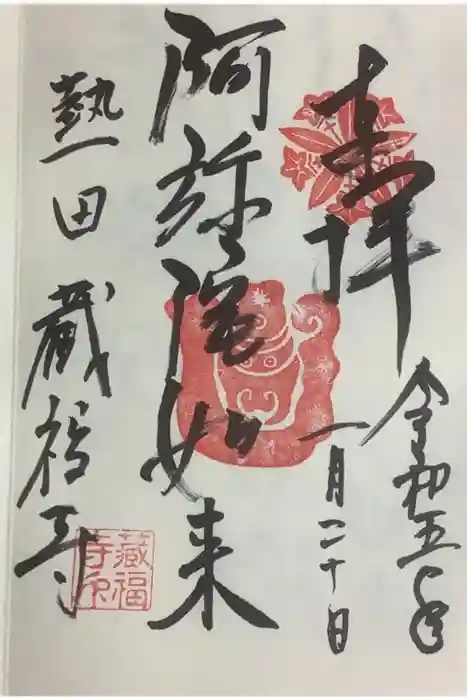 奉拝
令和五年
一月二十日
阿弥陀如来
熱田 蔵福寺
蔵福
寺印